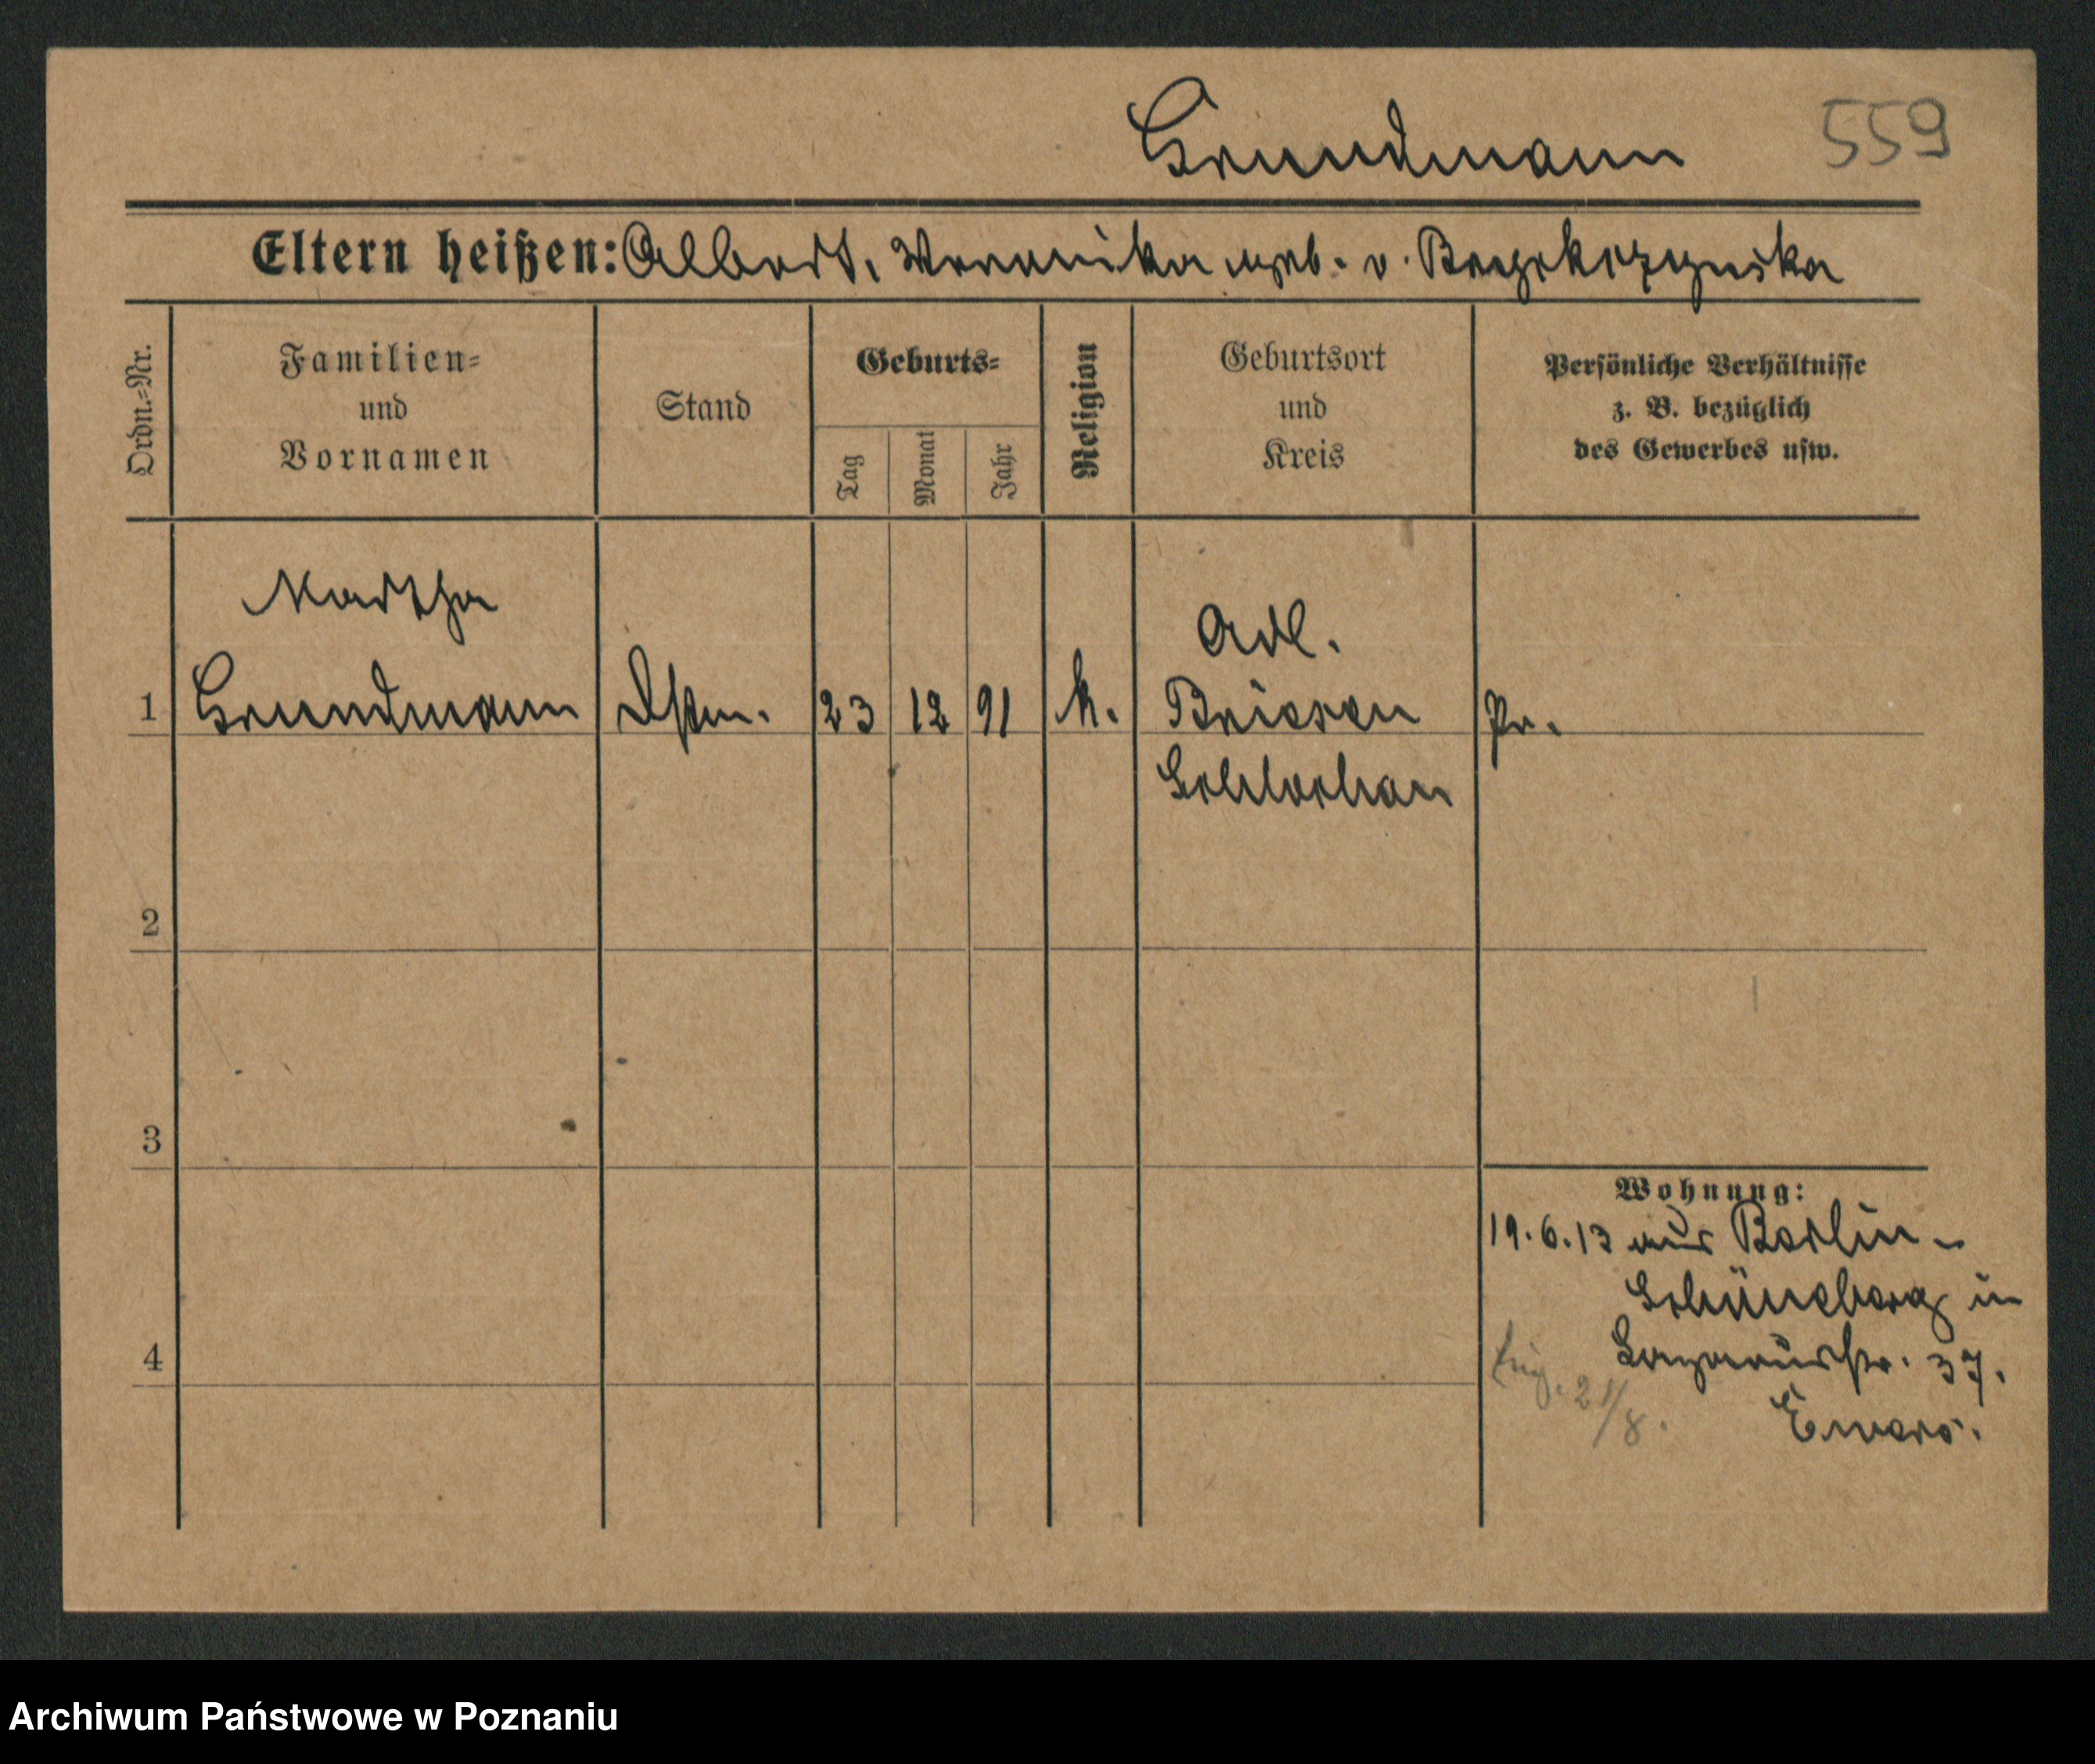 Grundmann 559
Eltern heißen: Albert, Veronika geb. v.
Ordn.=Nr.
Familien=
und
Vornamen
Stand
Geburts=
Tag
Monat
Jahr
Religion
Geburtsort
und
Kreis
Persönliche Verhältnisse
z. B. bezüglich
des Gewerbes usw.
Martha
Adl.
1 Grundmann 23 12 91 k. Briesen Pr.
Schlochau
2
3
Wohnung:
19.6.13 aus Berlin-
Schöneberg in
4
Lazarusstr. 37.
21/8.
Ewers.
Archiwum Państwowe w Poznaniu